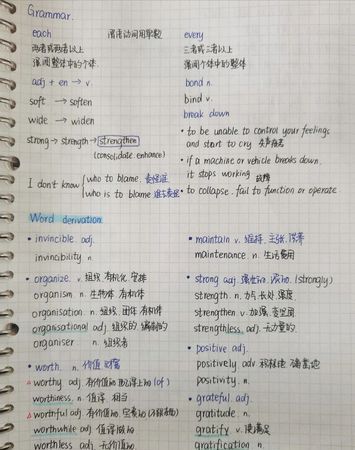 Grammar.
each 谓语动词用单数 every
两者或两者以上 三者或三者以上
强调整体中的个体. 强调个体中的整体
adj + en → v. bond n.
soft → soften bind v.
wide → widen break down
strong → strength → strengthen • to be unable to control your feelings
(consolidate enhance) and start to cry 失声痛哭
I don't know { who to blame. • if a machine or vehicle breaks down,
who is to blame it stops working 故障
• to collapse. fail to function or operate
Word derivation.
• invincible adj. • maintain v. 维持. 主张.
invincibility n. maintenance. n. 生活费用
• organize. v. 组织 有机化 安排 • strong adj. (strongly)
organism n. 生物体 有机体 strength. n. 力气 长处. 强度
organisation n. 组织 团体 有机体 strengthen v. 加强
organsational adj. 组织的 编制的 strengthless adj. 无力量的
organiser n. 组织者 • positive adj.
• worth. n. 价值 财富 positively adv.
△ worthy adj. 有价值的 (of) positivity. n.
worthiness. n. 值得 相当 • grateful adj.
△ worthful adj. 有价值的 gratitude. n.
worthwhile adj 值得做的 gratify v. 使满足
worthless adj. 无价值的 gratification n.